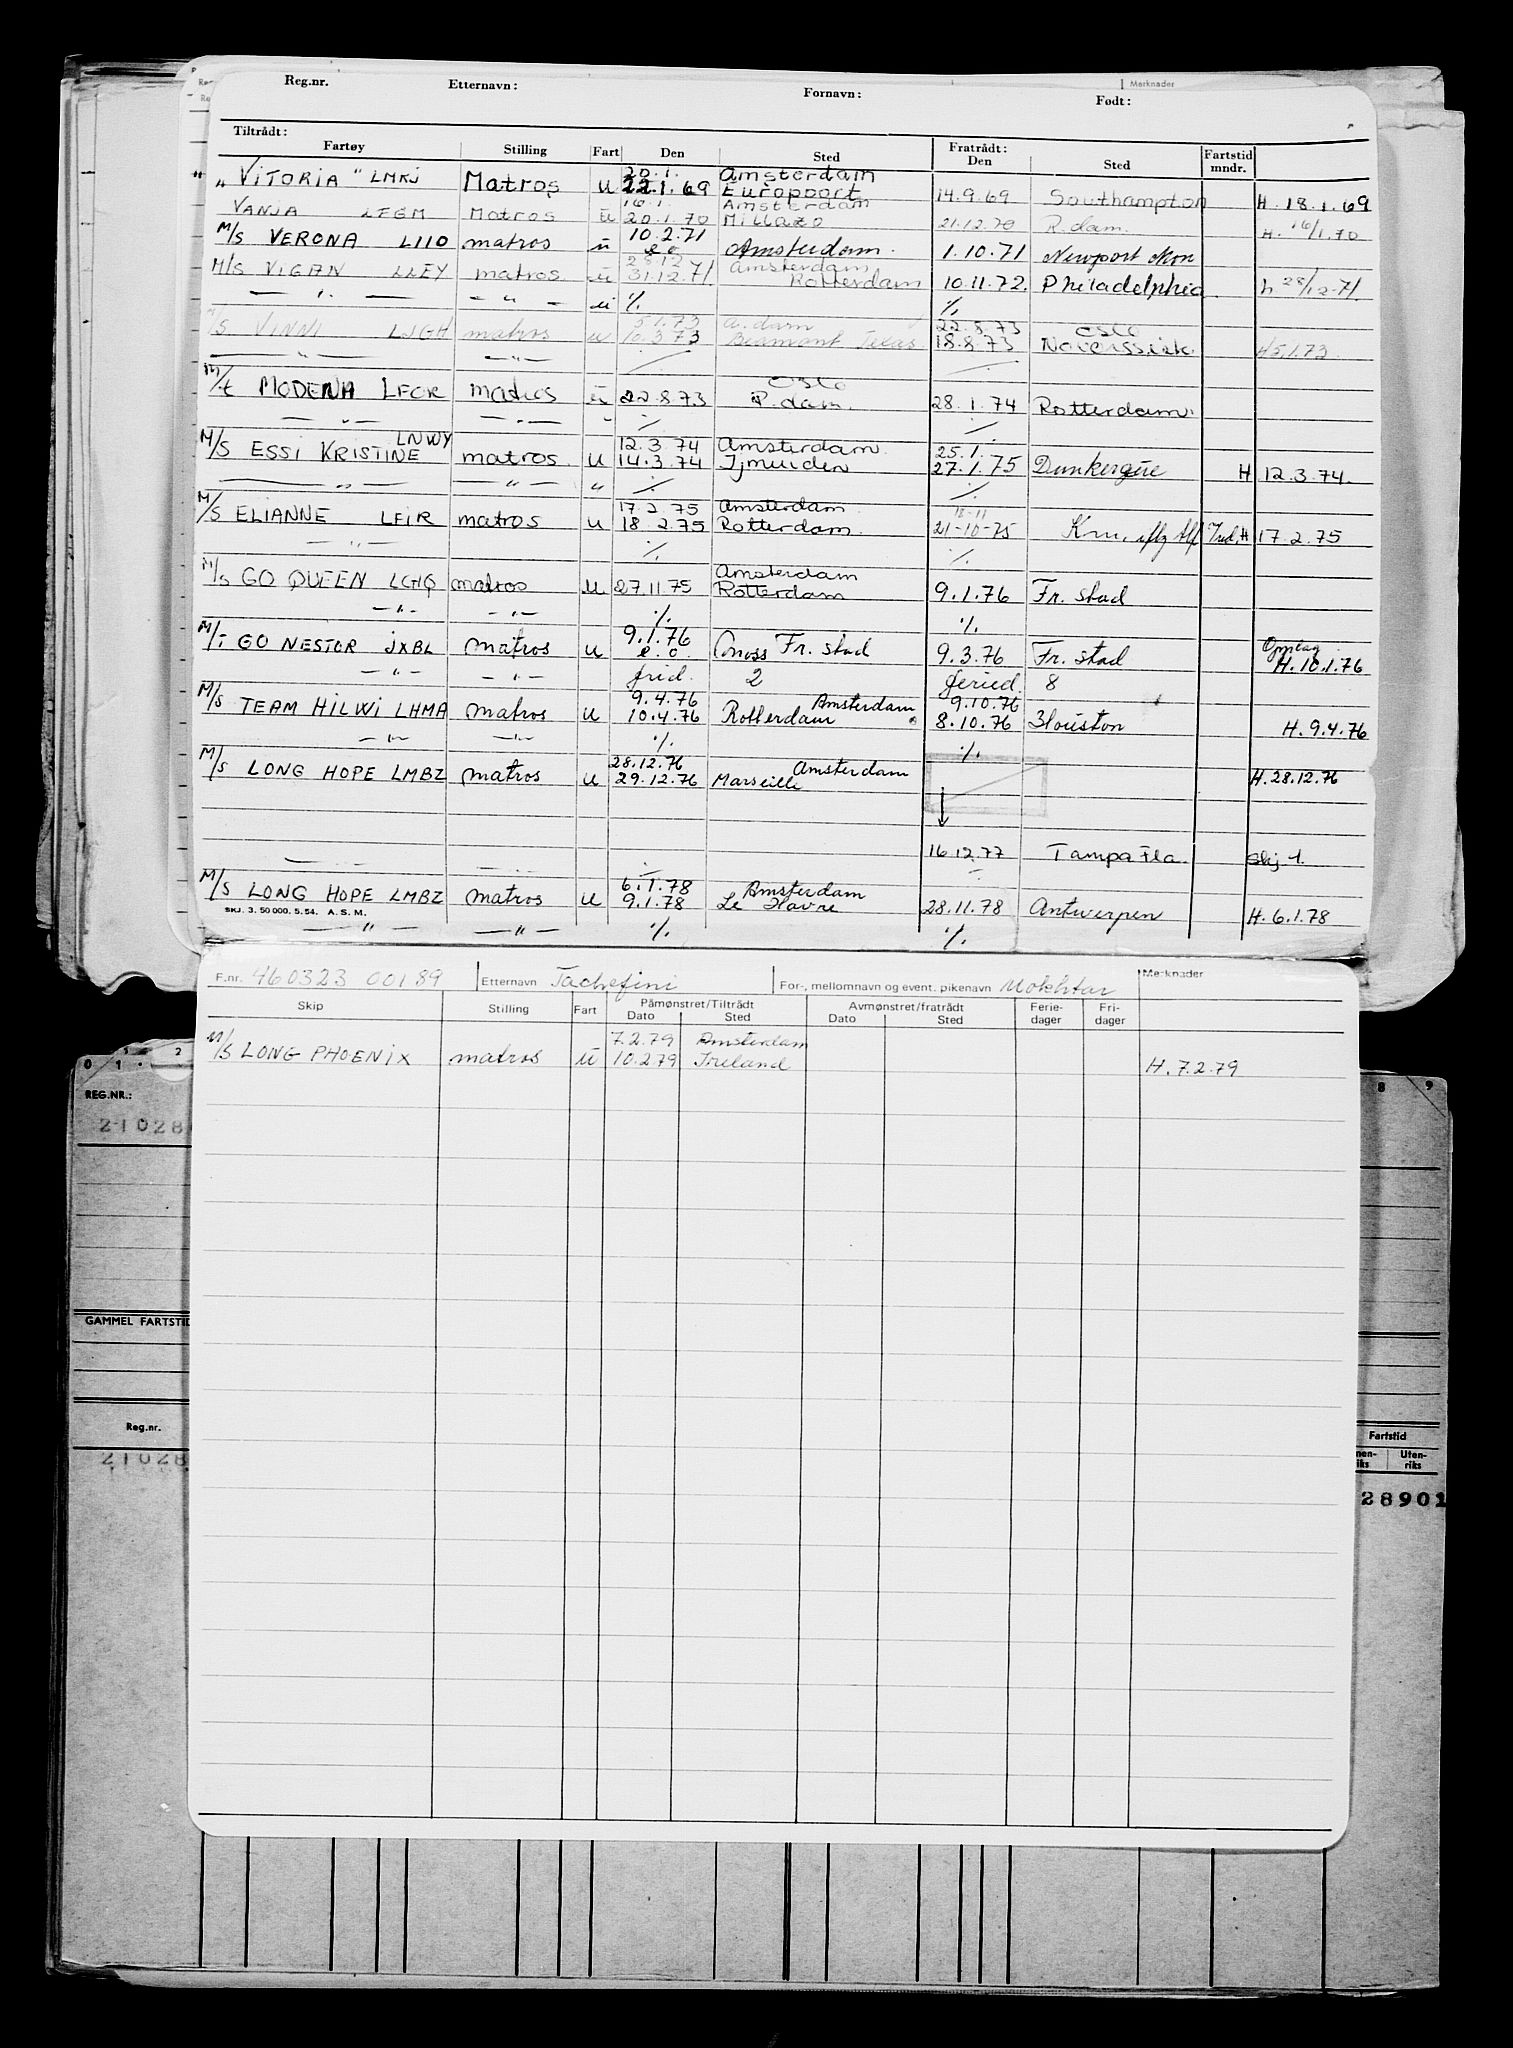 Reg.nr. Etternavn: Fornavn: Født: Merknader
Tiltrådt: Fratrådt:
Fartøy Stilling Fart Den Sted Den Sted Fartstid mndr.
20.1. Amsterdam
„ VITORIA " LMKJ Matros u 22.1.69 Europoort 14.9.69 Southampton H. 18.1.69
16.1. Amsterdam
VANJA LFGM Matros u 20.1.70 Millazo 21.12.70 R.dam. H. 16/1.70
10.2.71
M/S VERONA LIIO matros u e.o Amsterdam. 1.10.71 Newport Mon
28.12 Amsterdam
M/S VIGAN LLEY matros u 31.12.71. Rotterdam 10.11.72. Philadelphia h 28/12-71.
— " — — " — u ·/. ·/.
5.1.73 a.dam 22.8.73 Oslo
M/S VINNI LJGH matros u 10.3.73 Beamont Texas 18.8.73 Noverssisk. H 5.1.73
— " — — " — ·/. ·/.
Oslo
M/t MODENA LFOR matros u 22.8.73 R.dam. 28.1.74 Rotterdam.
— " — — " — " ·/. ·/.
LNWY 12.3.74 Amsterdam. 25.1.
M/S ESSI KRISTINE matros. u 14.3.74 Ijmuiden 27.1.75 Dunkerque H 12.3.74.
— " — — " — " ·/. ·/.
17.2.75 Amsterdam. 18-11
M/S ELIANNE LEIR matros u 18.2.75 Rotterdam. 21-10-75 H 17.2.75
— " — ·/. ·/.
Amsterdam
M/S GO QUEEN LCHQ matros u 27.11.75 Rotterdam 9.1.76 Fr. stad
— " — — " — ·/. ·/.
9.1.76
M/T GO NESTOR JXBL matros u e.o. Fr. stad 9.3.76 Fr. stad H. 10.1.76
— " — — " — frid. 2 feried. 8
9.4.76 Amsterdam 9.10.76
M/S TEAM HILWI LHMA matros u 10.4.76 Rotterdam 8.10.76 Houston H. 9.4.76
— " — — " — ·/. ·/.
28.12.76 Amsterdam
M/S LONG HOPE LMBZ matros u 29.12.76 Marseille H. 28.12.76
16.12.77 Tampa Fla. skj 1.
6.1.78 Amsterdam
M/S LONG HOPE LMBZ matros u 9.1.78 Le Havre 28.11.78 Antwerpen H. 6.1.78
SKJ. 3. 50 000. 5. 54. A. S. M.
— " — — " — ·/. ·/.
F.nr. 460323 00189 Etternavn Tachefini For-, mellomnavn og event. pikenavn Mokhtar Merknader
Skip Stilling Fart Påmønstret/Tiltrådt Avmønstret/fratrådt Ferie-dager Fri-dager
Dato Sted Dato Sted
7.2.79 Amsterdam
M/S LONG PHOENIX matros u 10.2.79 Ireland H. 7.2.79
0 1 2 8 9
REG.NR.:
21028
GAMMEL FARTSTID
Reg.nr. Fartstid
Uten-riks
21028
28901